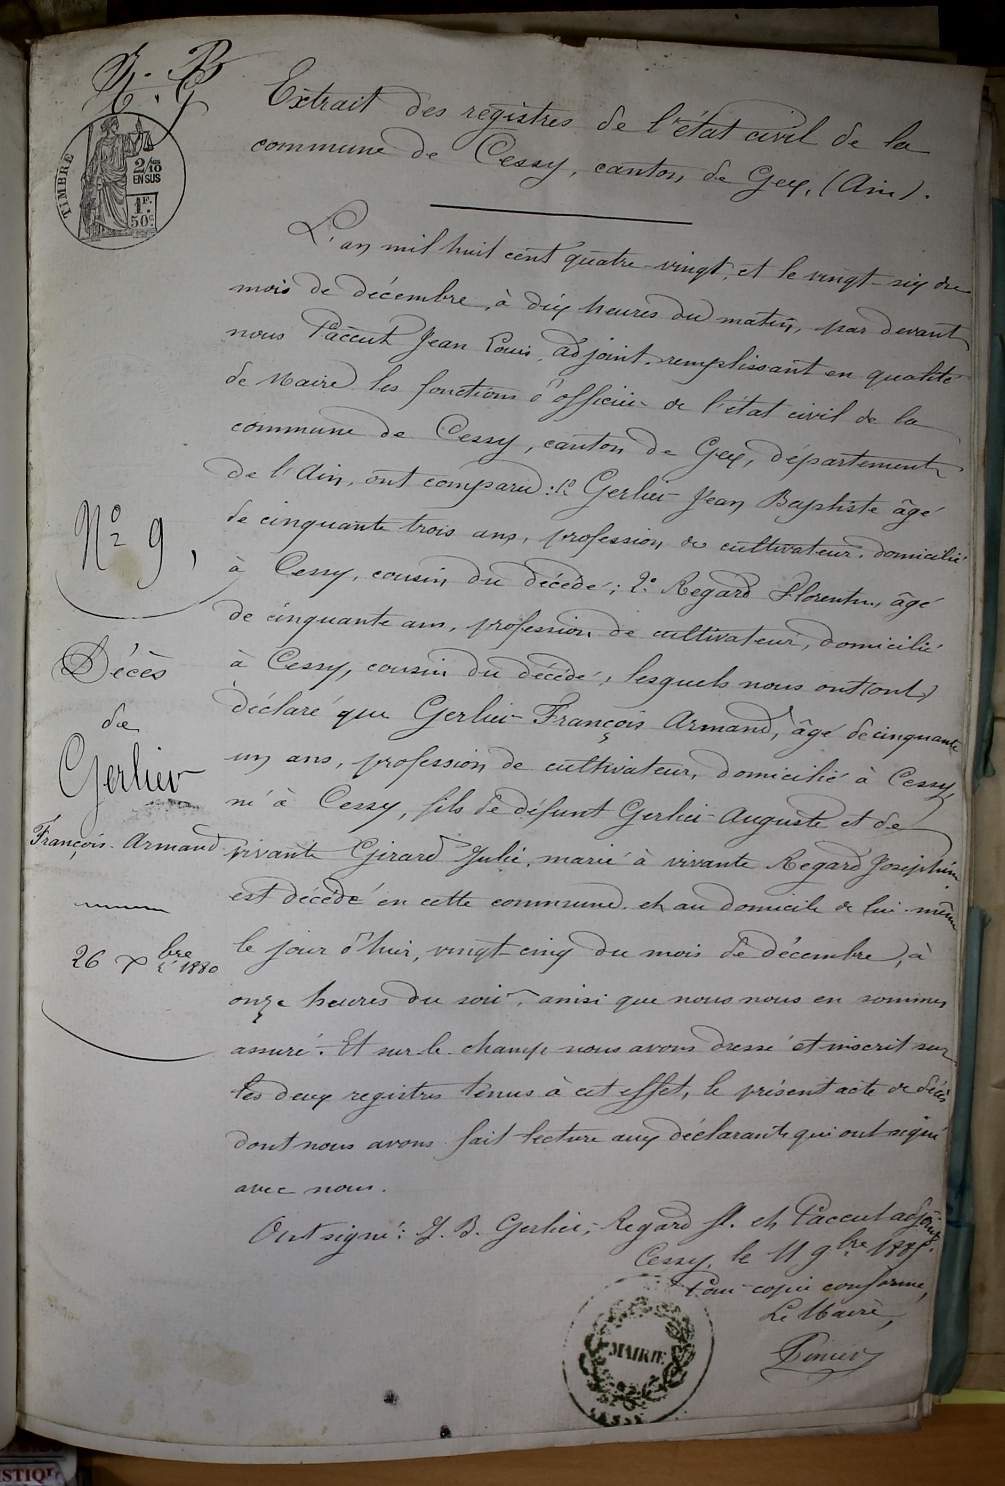 TIMBRE
2/10
EN SUS
1F.
50c
Extrait des registres de l'état civil de la
commune de Cessy, canton de Gex, (Ain).
L'an mil huit cent quatre-vingt, et le vingt-six du
mois de décembre, à dix heures du matin, par devant
nous Paccut Jean Louis, adjoint, remplissant en qualité
de Maire les fonctions d'officier de l'état civil de la
commune de Cessy, canton de Gex, département
de l'Ain, ont comparu: 1º Gerlier Jean Baptiste âgé
de cinquante trois ans, profession de cultivateur, domicilié
à Cessy, cousin du décédé; 2º Regard Florentin, âgé
de cinquante ans, profession de cultivateur, domicilié
à Cessy, cousin du décédé, lesquels nous ont (ont)
déclaré que Gerlier François Armand, âgé de cinquante
un ans, profession de cultivateur, domicilié à Cessy
né à Cessy, fils de défunt Gerlier Auguste et de
vivante Girard Julie, marié à vivante Regard Joséphine
est décédé en cette commune et au domicile de lui-même
le jour d'hier, vingt-cinq du mois de décembre, à
onze heures du soir, ainsi que nous nous en sommes
assuré. Et sur le champ nous avons dressé et inscrit sur
les deux registres tenus à cet effet, le présent acte de décès
dont nous avons fait lecture aux déclarants qui ont signé
avec nous.
Ont signé: J. B. Gerlier, Regard fl. et Paccut adjoint.
Cessy, le 11 9bre
Pour copie conforme,
Le Maire,
Nº 9,
Décès
de
Gerlier
François-Armand
26 Xbre 1880
MAIRIE
CESSY